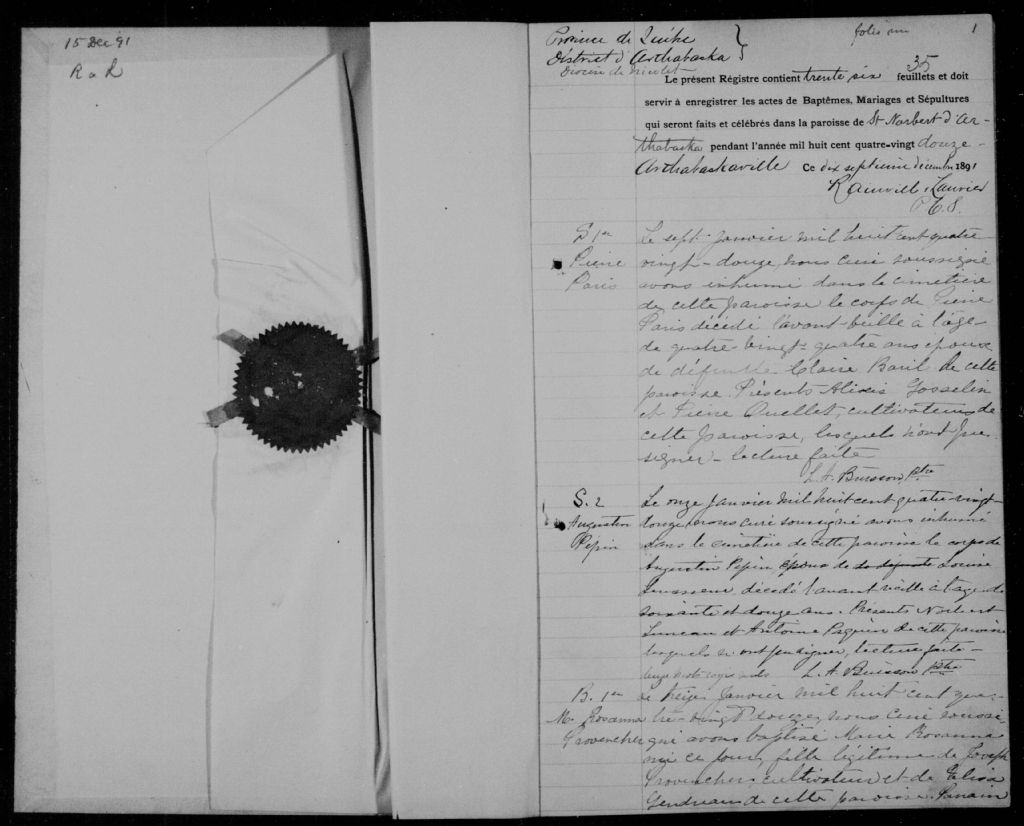 15 Dec 91
R & L
folio un
1
Province de Québec
District d'Arthabaska
Diocèse de Nicolet
35
Le présent Régistre contient trente six feuillets et doit
servir à enregistrer les actes de Baptêmes, Mariages et Sépultures
qui seront faits et célébrés dans la paroisse de St Norbert d'Ar-
thabaska pendant l'année mil huit cent quatre-vingt douze -
Arthabaskaville Ce dix septieme décembre 1891
Rainville & Laurier
P.C.S.
S 1er
Pierre
Paris
Le sept Janvier mil huit cent quatre
vingt-douze, nous curé soussigné
avons inhumé dans le cimetière
de cette paroisse le corps de Pierre
Paris décédé l'avant-veille à l'âge
de quatre-vingt-quatre ans époux
de défunte Claire Baril de cette
paroisse. Présents Alixis Gosselin
et Pierre Ouellet, cultivateurs de
cette paroisse, lesquels n'ont pu
signer - lecture faite
L. A. Buisson Ptre
S. 2
Augustin
Pépin
Le onze Janvier mil huit cent quatre-vingt-
douze, nous curé soussigné avons inhumé
dans le cimetière de cette paroisse le corps de
Augustin Pépin époux de la défunte Louise
Levasseur, décédé l'avant veille à l'age de
soixante et douze ans. Présents Norbert
et Antoine Paquin de cette paroisse
lesquels n'ont pu signer, lecture faite -
L. A. Buisson Ptre
B. 1er
M. Rosanna
Provencher
Le treize Janvier mil huit cent qua-
tre-vingt douze, nous curé soussi-
gné avons baptisé Marie Rosanna
née ce jour, fille légitime de Joseph
Provencher, cultivateur et de Elisa
Gendreau de cette paroisse. Parrain